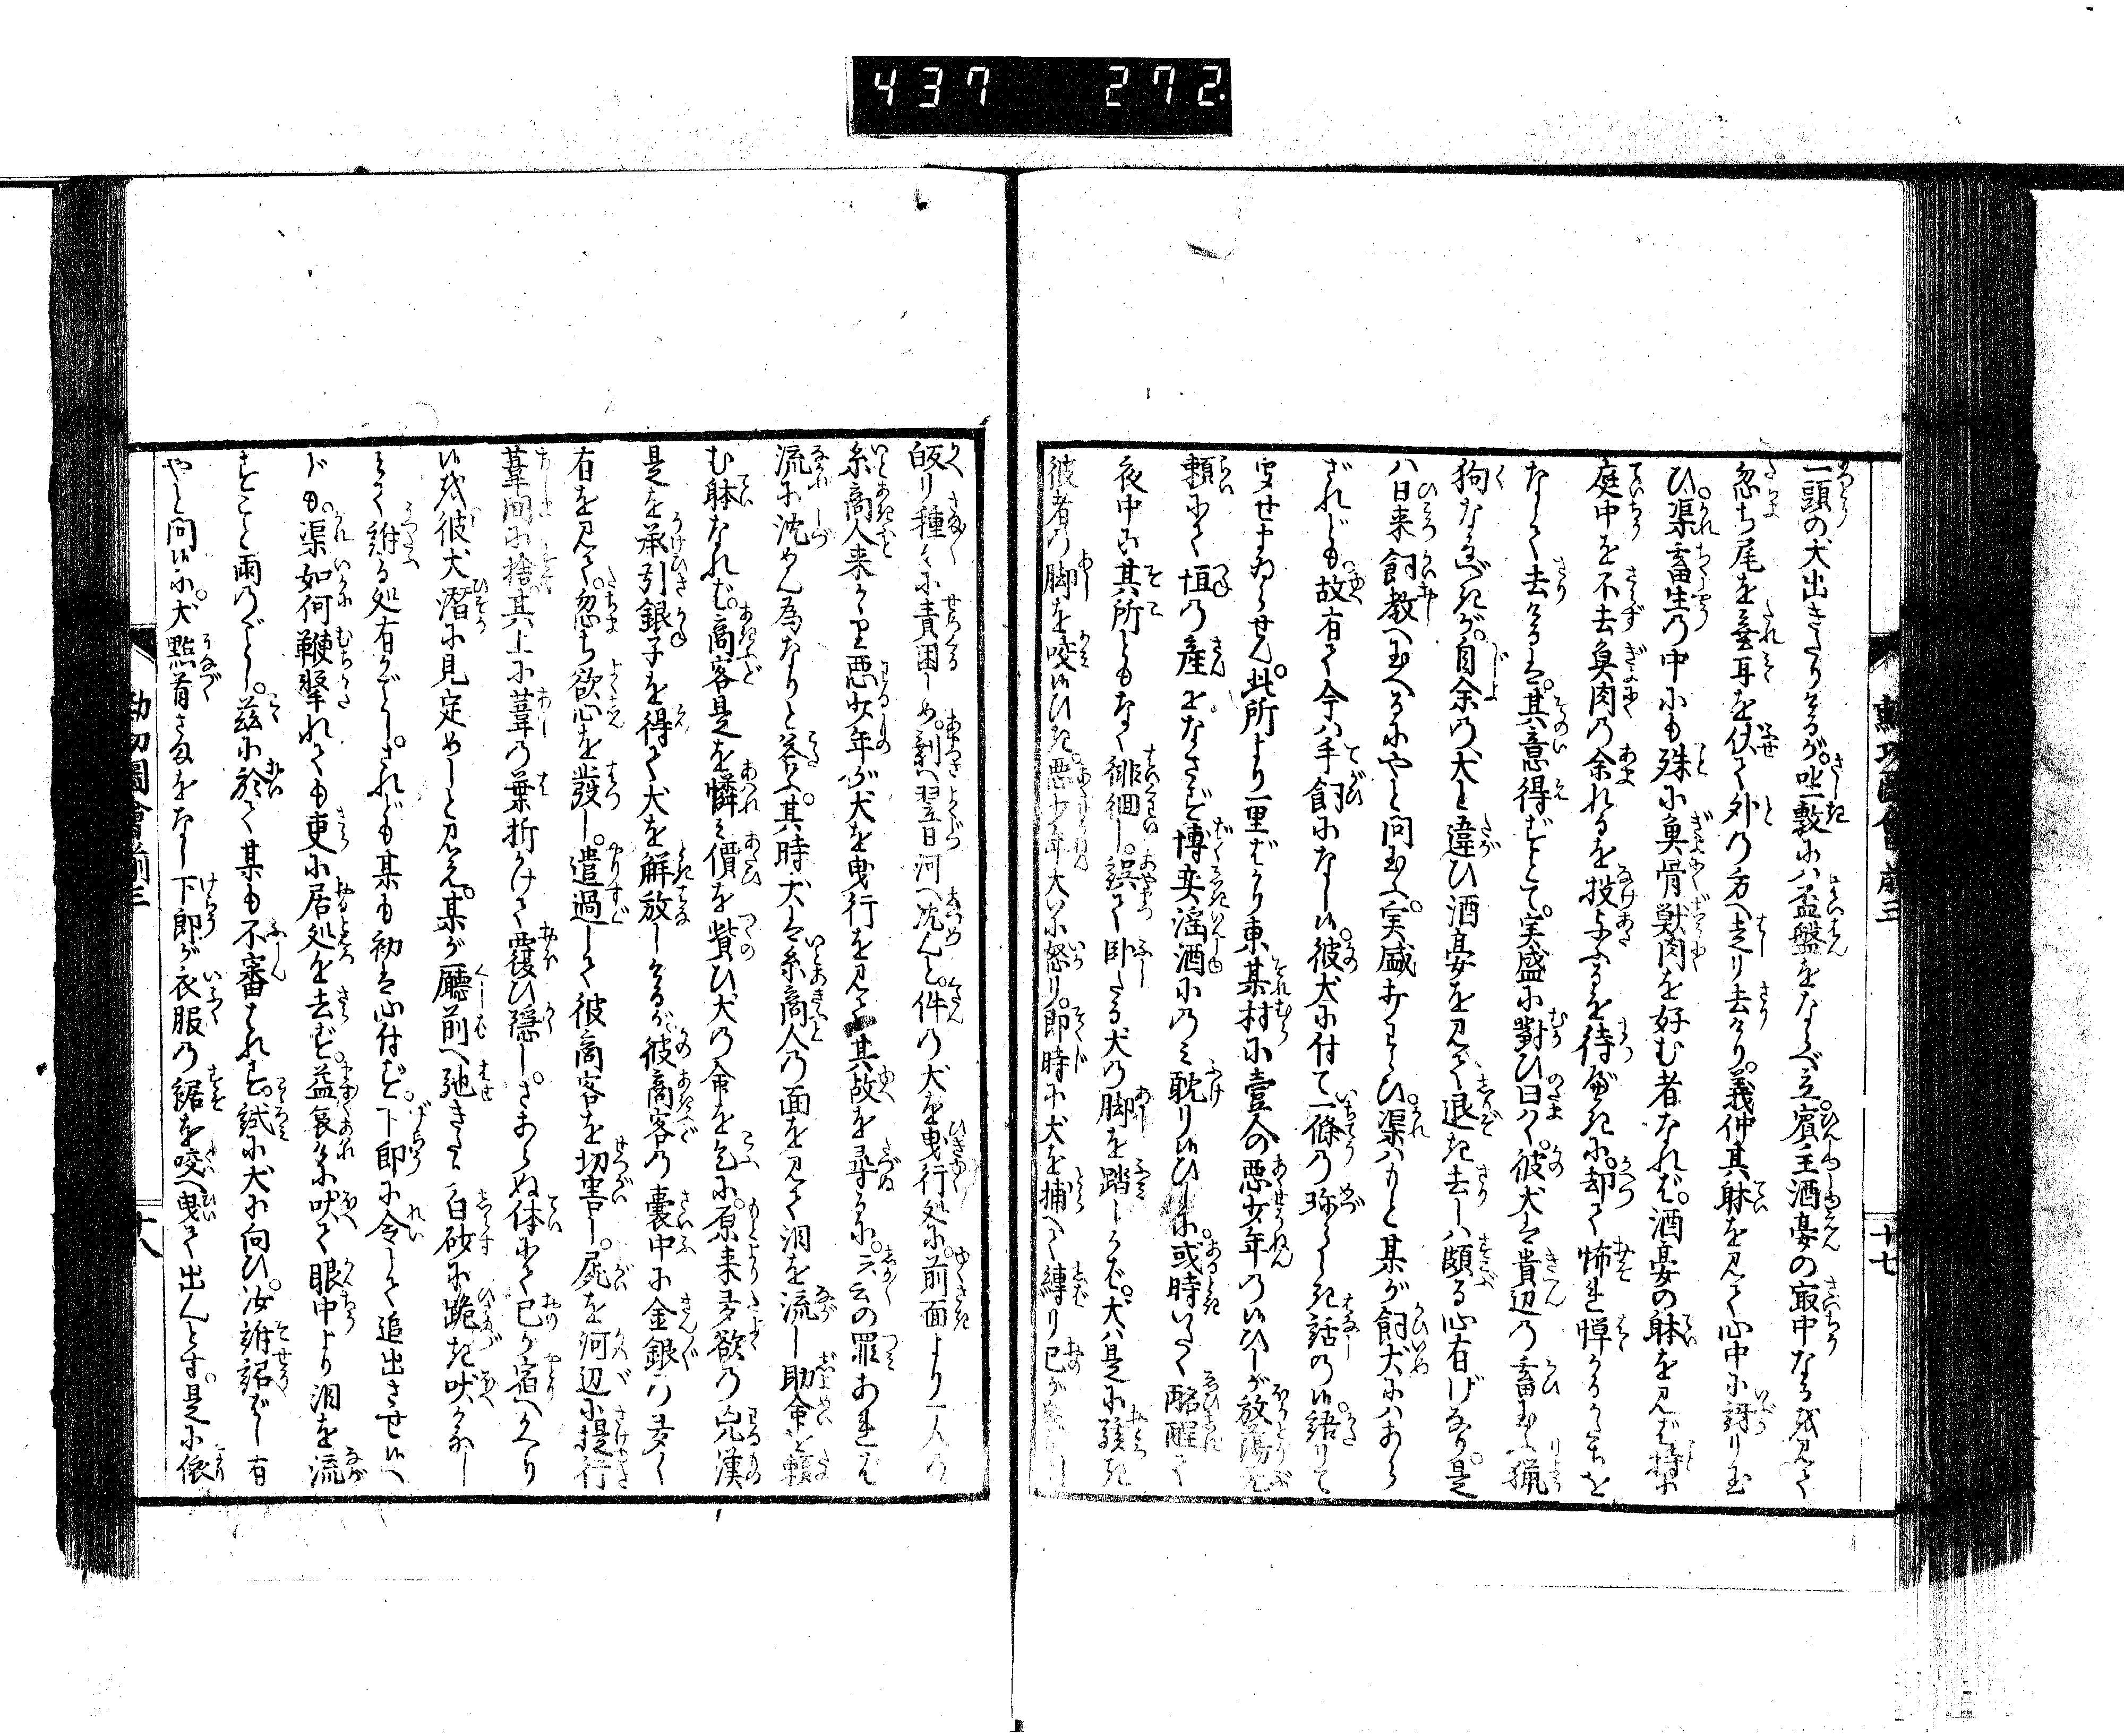 437 272.
一頭の犬出きたりけるが。坐敷に盃盤をならべ立。賓主酒宴の最中なるを見て
忽ち尾を垂耳を伏て外の方へ走り去けり。義仲其躰を見て心中に訝り玉
ひ。渠畜生の中にも殊に魚骨獣肉を好む者なれば。酒宴の躰を見ば特に
庭中を不去魚肉の余れるを投与ふるを待べきに。却て怖れ憚るかたちを
なして去けるは。其意得ずとて。実盛に対ひ曰く。彼犬は貴辺の畜玉ふ猟
狗なるべきが。自余の犬と違ひ酒宴を見て退き去しは頗る心有げなり。是
は日来飼教へ玉へるにやと問玉ふ。実盛打わらひ。渠はもと某が飼犬にはあら
ざれども。故有て今は手飼になし候。彼犬に付て一條の珍らしき話の候語りて
聞せまゐらせん。此所より一里ばかり東某村に壹人の悪少年の候ひしが放蕩無
頼にて恒の産をなさず博奕淫酒にのみ耽り候ひしに。或時いたく酩酊して
夜中に其所ともなく徘徊し。誤て臥たる犬の脚を踏しかば。犬は是に駭き
彼者の脚を咬候ひき。悪少年大いに怒り。即時に犬を捕へて縛り己が
皈り種々に責困しめ。剰へ翌日河へ沈んと。件の犬を曳行処に。前面より一人の
糸商人来かゝり悪少年が犬を曳行を見て其故を尋るに。云云の罪あれば
流に沈めん為なりと答ふ。其時犬は糸商人の面を見て泪を流し助命を頼
む躰なれば。商客是を憐み價を贖ひ犬の命を乞に。原来多欲の兇漢
是を承引銀子を得て犬を解放しけるが彼商客の嚢中に金銀の多く
有を見て。忽ち欲心を發し。遣過して彼商客を切害し。屍を河辺に提行
葦間に捨。其上に葦の葉折かけて覆ひ隠し。さあらぬ体にて己が宿へかへり
候を彼犬潜に見定めしと見え。某が廳前へ馳きたり白砂に跪き吠かなし
みて訴る処有がごとし。されども某も初は心付ず。下郎に令して追出させ候へ
ども。渠如何鞭撃れても更に居処を去ず。益哀れに吠て眼中より泪を流
すこと雨のごとし。茲に於て某も不審はれず。試に犬に向ひ。汝訴詔ばし有
やと問候に。犬點首さまをなし下郎が衣服の裾を咬へ曳て出んとす。是に依
十七
十八